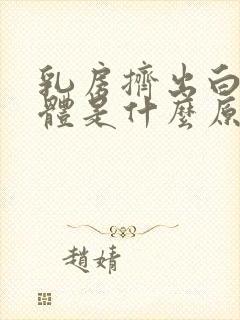 乳房擠出白
體是什麼原
趙婧